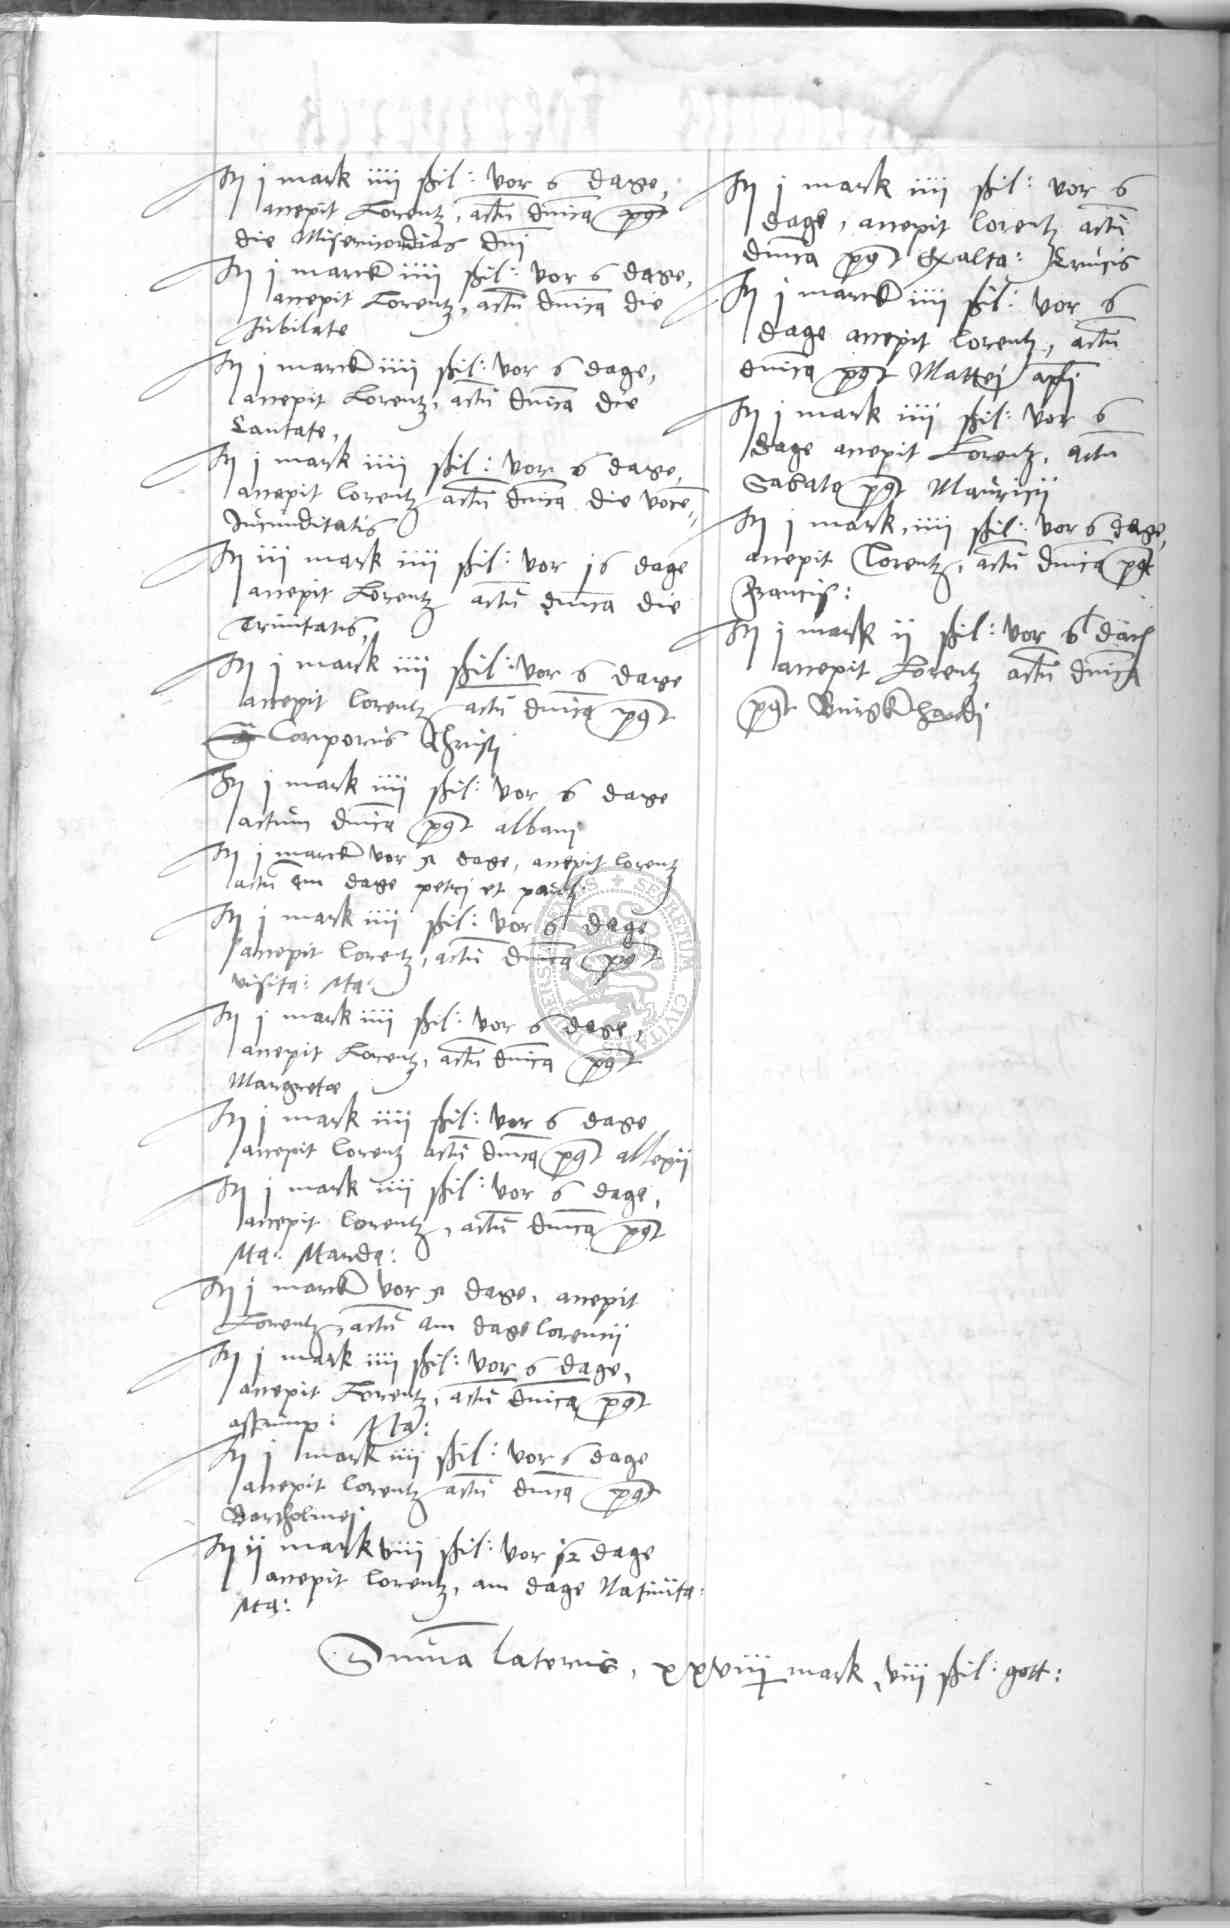 It j mark iiij ßil: vor 6 dage,
accepit Lorentz, actū dnīca post
die Misericordias dnī
It j marck iiij ßil: vor 6 dage,
accepit Lorentz, actū dnīca die
Jubilate
It j marck iiij ßil: vor 6 dage,
accepit Lorentz, actū dnīca die
Cantate,
It j mark iiij ßil: vor 6 dage,
accepit lorentz actū dnīca die vocē
Jucunditatis
It iij mark iiij ßil: vor 16 dage
accepit Lorentz actū dnīca die
Trinitatis,
It j mark iiij ßil: vor 6 dage
accepit lorentz actū dnīca post
Corporis Christi
It j mark iiij ßil: vor 6 dage
actum dnīca post albani
It j marck vor 5 dage, accepit lorentz
actū am dage petri et pauli
It j mark iiij ßil: vor 6 dage
accepit lorentz, actū dnīca post
visita: Ma:
It j mark iiij ßil: vor 6 dage,
accepit Lorentz, actū dnīca post
Margretæ
It j mark iiij ßil: vor 6 dage
accepit lorentz actū dnīca post allexii
It j mark iiij ßil: vor 6 dage,
accepit lorentz, actū dnīca post
Ma: Magda:
It j marck vor 5 dage, accepit
Lorentz, actū am dage lorencij
It j mark iiij ßil: vor 6 dage,
accepit Lorentz, actū dnīca post
assump: Ma:
It j mark iiij ßil: vor 6 dage
accepit lorentz actū dnīca post
Bartholmei
It ij mark viij ßil: vor 12 dage
accepit lorentz, am dage Natiuita:
Ma:
It j mark iiij ßil: vor 6
dage, accepit lorentz actū
dnīca post Exalta: Crucis
It j marck iiij ßil: vor 6
dage accepit lorentz, actū
dnīca post Mattei apli
It j mark iiij ßil: vor 6
dage accepit Lorentz, actū
Sabato post Mauricij
It j mark, iiij ßil: vor 6 dage,
accepit Lorentz, actū dnīca post
Francis:
It j mark ij ßil: vor 6 dach
accepit Lorentz actū dnīca
post Burckhardi
Summa lateris, xxviij mark, viij ßil: gott:
SECRETUM CIVITATIS